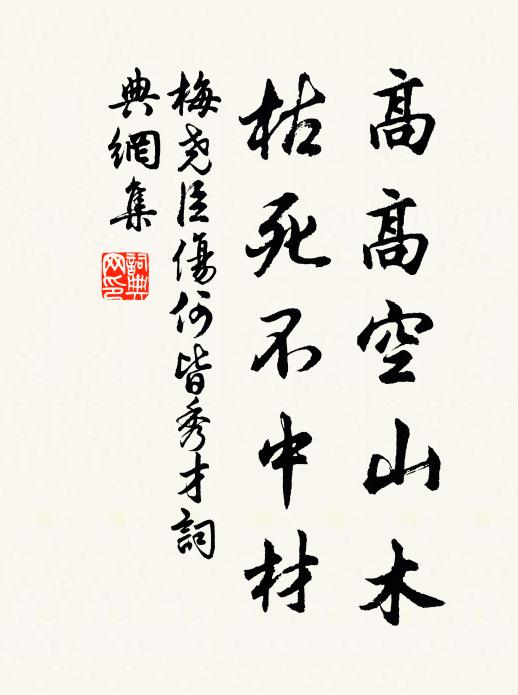 高高空山木
枯死不中材
梅堯臣傷何皆秀才詞
典網集
詞典網印